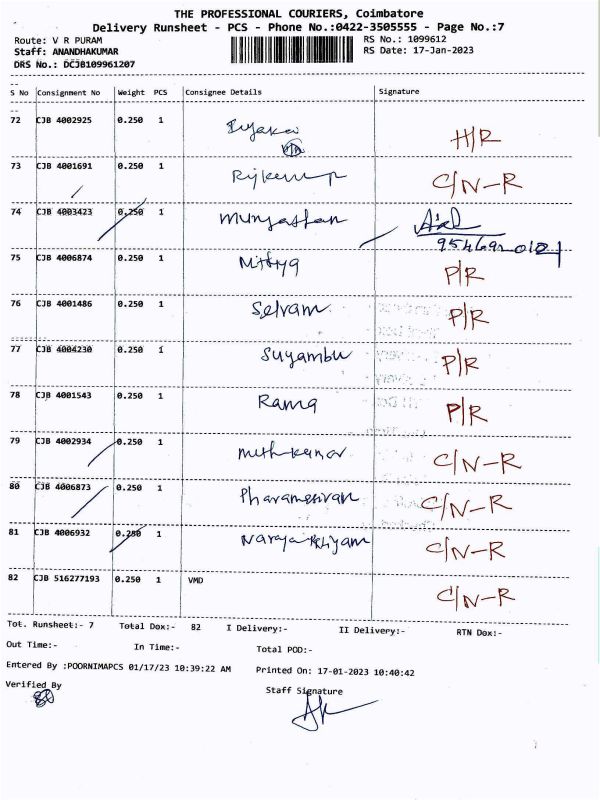 THE PROFESSIONAL COURIERS, Coimbatore
Delivery Runsheet - PCS - Phone No.:0422-3505555 - Page No.:7
Route: V R PURAM RS No.: 1099612
Staff: ANANDHAKUMAR RS Date: 17-Jan-2023
DRS No.: DCJB109961207
S No Consignment No Weight PCS Consignee Details Signature
72 CJB 4002925 0.250 1 H/R
73 CJB 4001691 0.250 1 C/N-R
74 CJB 4003423 0.250 1
75 CJB 4006874 0.250 1 Nithya P/R
76 CJB 4001486 0.250 1 Selvam P/R
77 CJB 4004230 0.250 1 Suyambu P/R
78 CJB 4001543 0.250 1 Rama P/R
79 CJB 4002934 0.250 1 C/N-R
80 CJB 4006873 0.250 1 C/N-R
81 CJB 4006932 0.250 1 C/N-R
82 CJB 516277193 0.250 1 VMD C/N-R
Tot. Runsheet:- 7 Total Dox:- 82 I Delivery:- II Delivery:- RTN Dox:-
Out Time:- In Time:- Total POD:-
Entered By :POORNIMAPCS 01/17/23 10:39:22 AM Printed On: 17-01-2023 10:40:42
Verified By Staff Signature